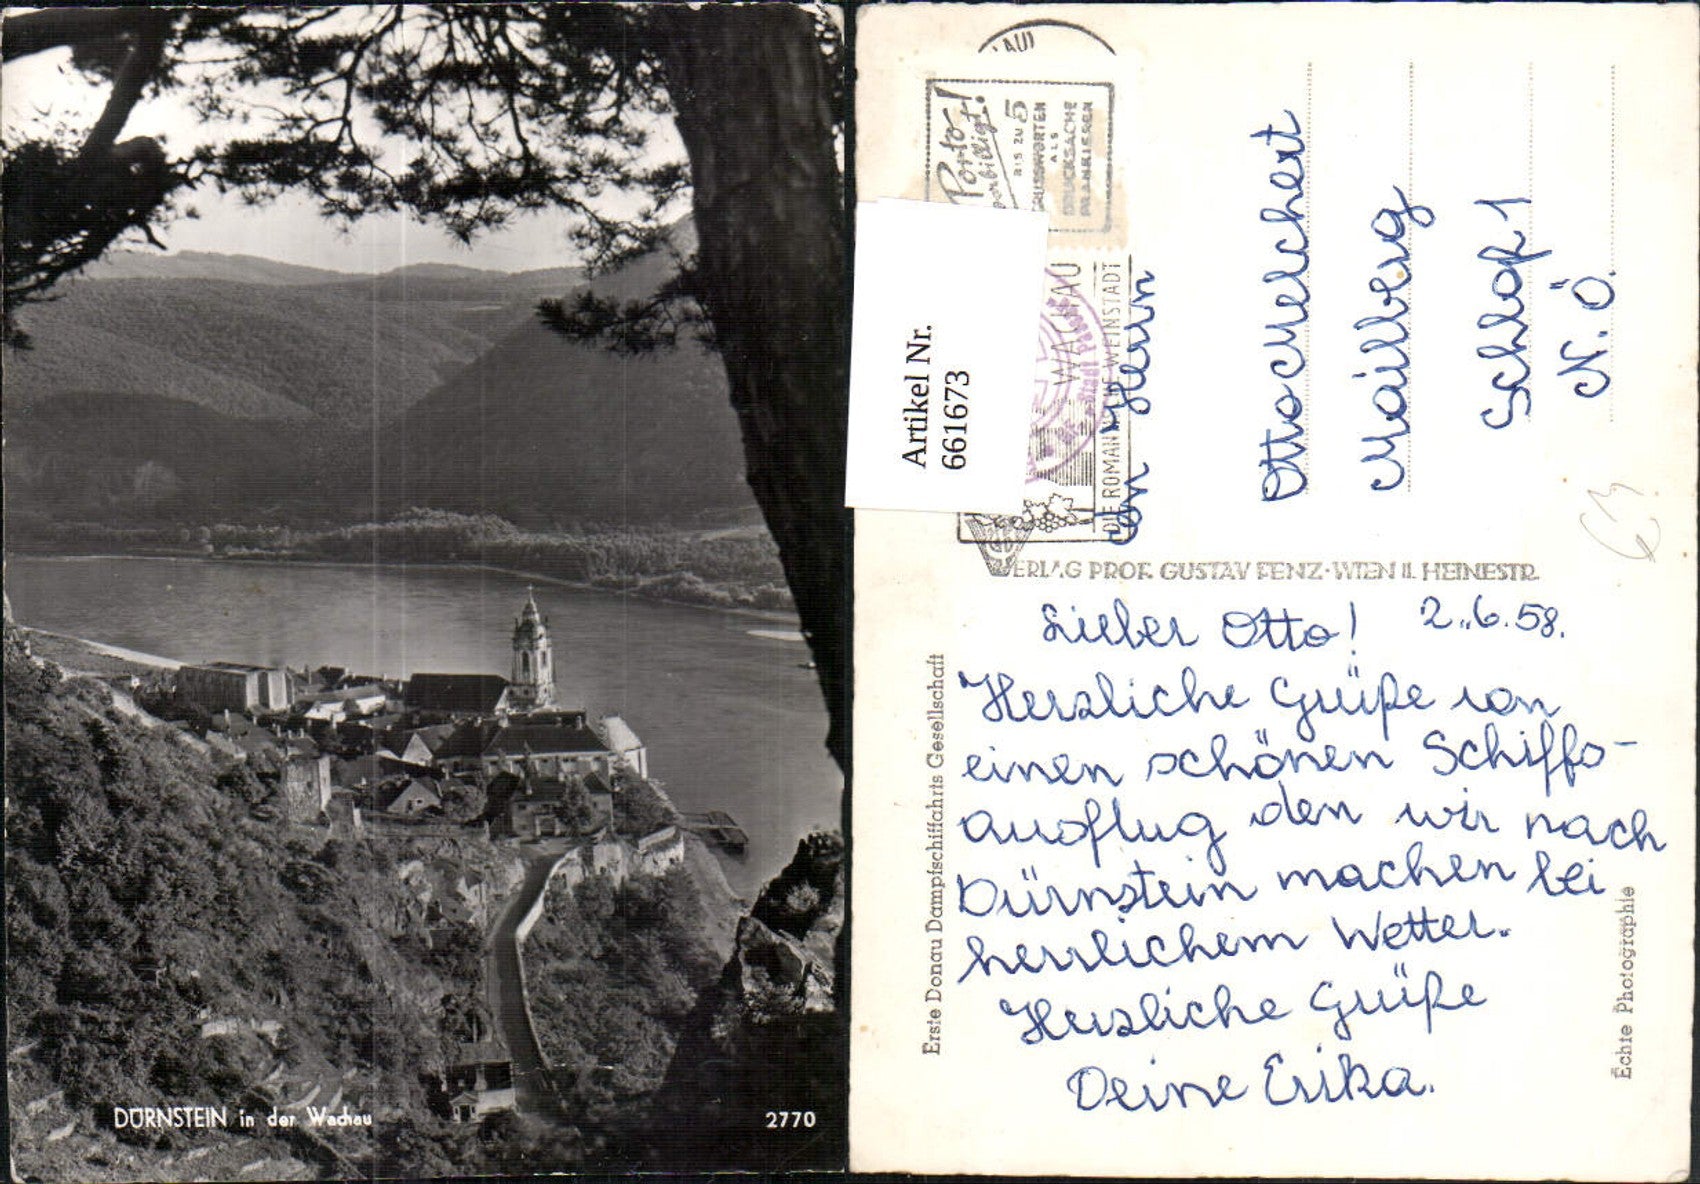 DÜRNSTEIN in der Wachau
2770
Artikel Nr.
661673
Porto
verbilligt!
BIS ZU 5
GRUSSWORTEN
ALS
DRUCKSACHE
FRANKIEREN
WACHAU
DIE ROMANTISCHE WEINSTADT
An Herrn
Otto Melchert
Mailberg
Schloß 1
N.Ö.
VERLAG PROF. GUSTAV FENZ·WIEN II. HEINESTR.
Erste Donau Dampfschiffahrts Gesellschaft
Echte Photographie
Lieber Otto! 2.6.58.
Herzliche Grüße von
einen schönen Schiffs-
ausflug den wir nach
Dürnstein machen bei
herrlichem Wetter.
Herzliche Grüße
Deine Erika.